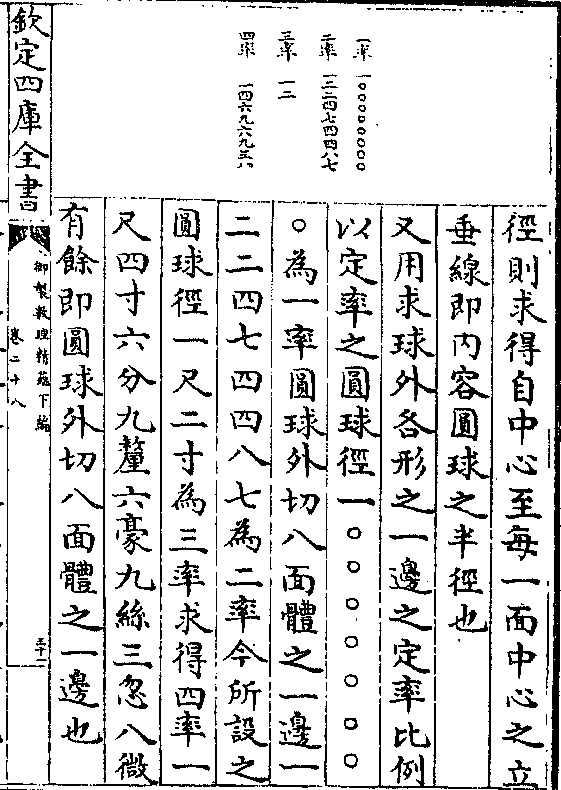 一率 一〇〇〇〇〇〇〇〇
二率 一二二四七四四八七
三率 一二
四率 一四六九六九三八
徑則求得自中心至每一面中心之立
垂線即内容圓球之半徑也
又用求球外各形之一邊之定率比例
以定率之圓球徑一〇〇〇〇〇〇〇
〇為一率圓球外切八面體之一邊一
二二四七四四八七為二率今所設之
圓球徑一尺二寸為三率求得四率一
尺四寸六分九釐六豪九絲三忽八微
有餘即圓球外切八面體之一邊也
欽定四庫全書
御製數理精蘊下編
卷二十八